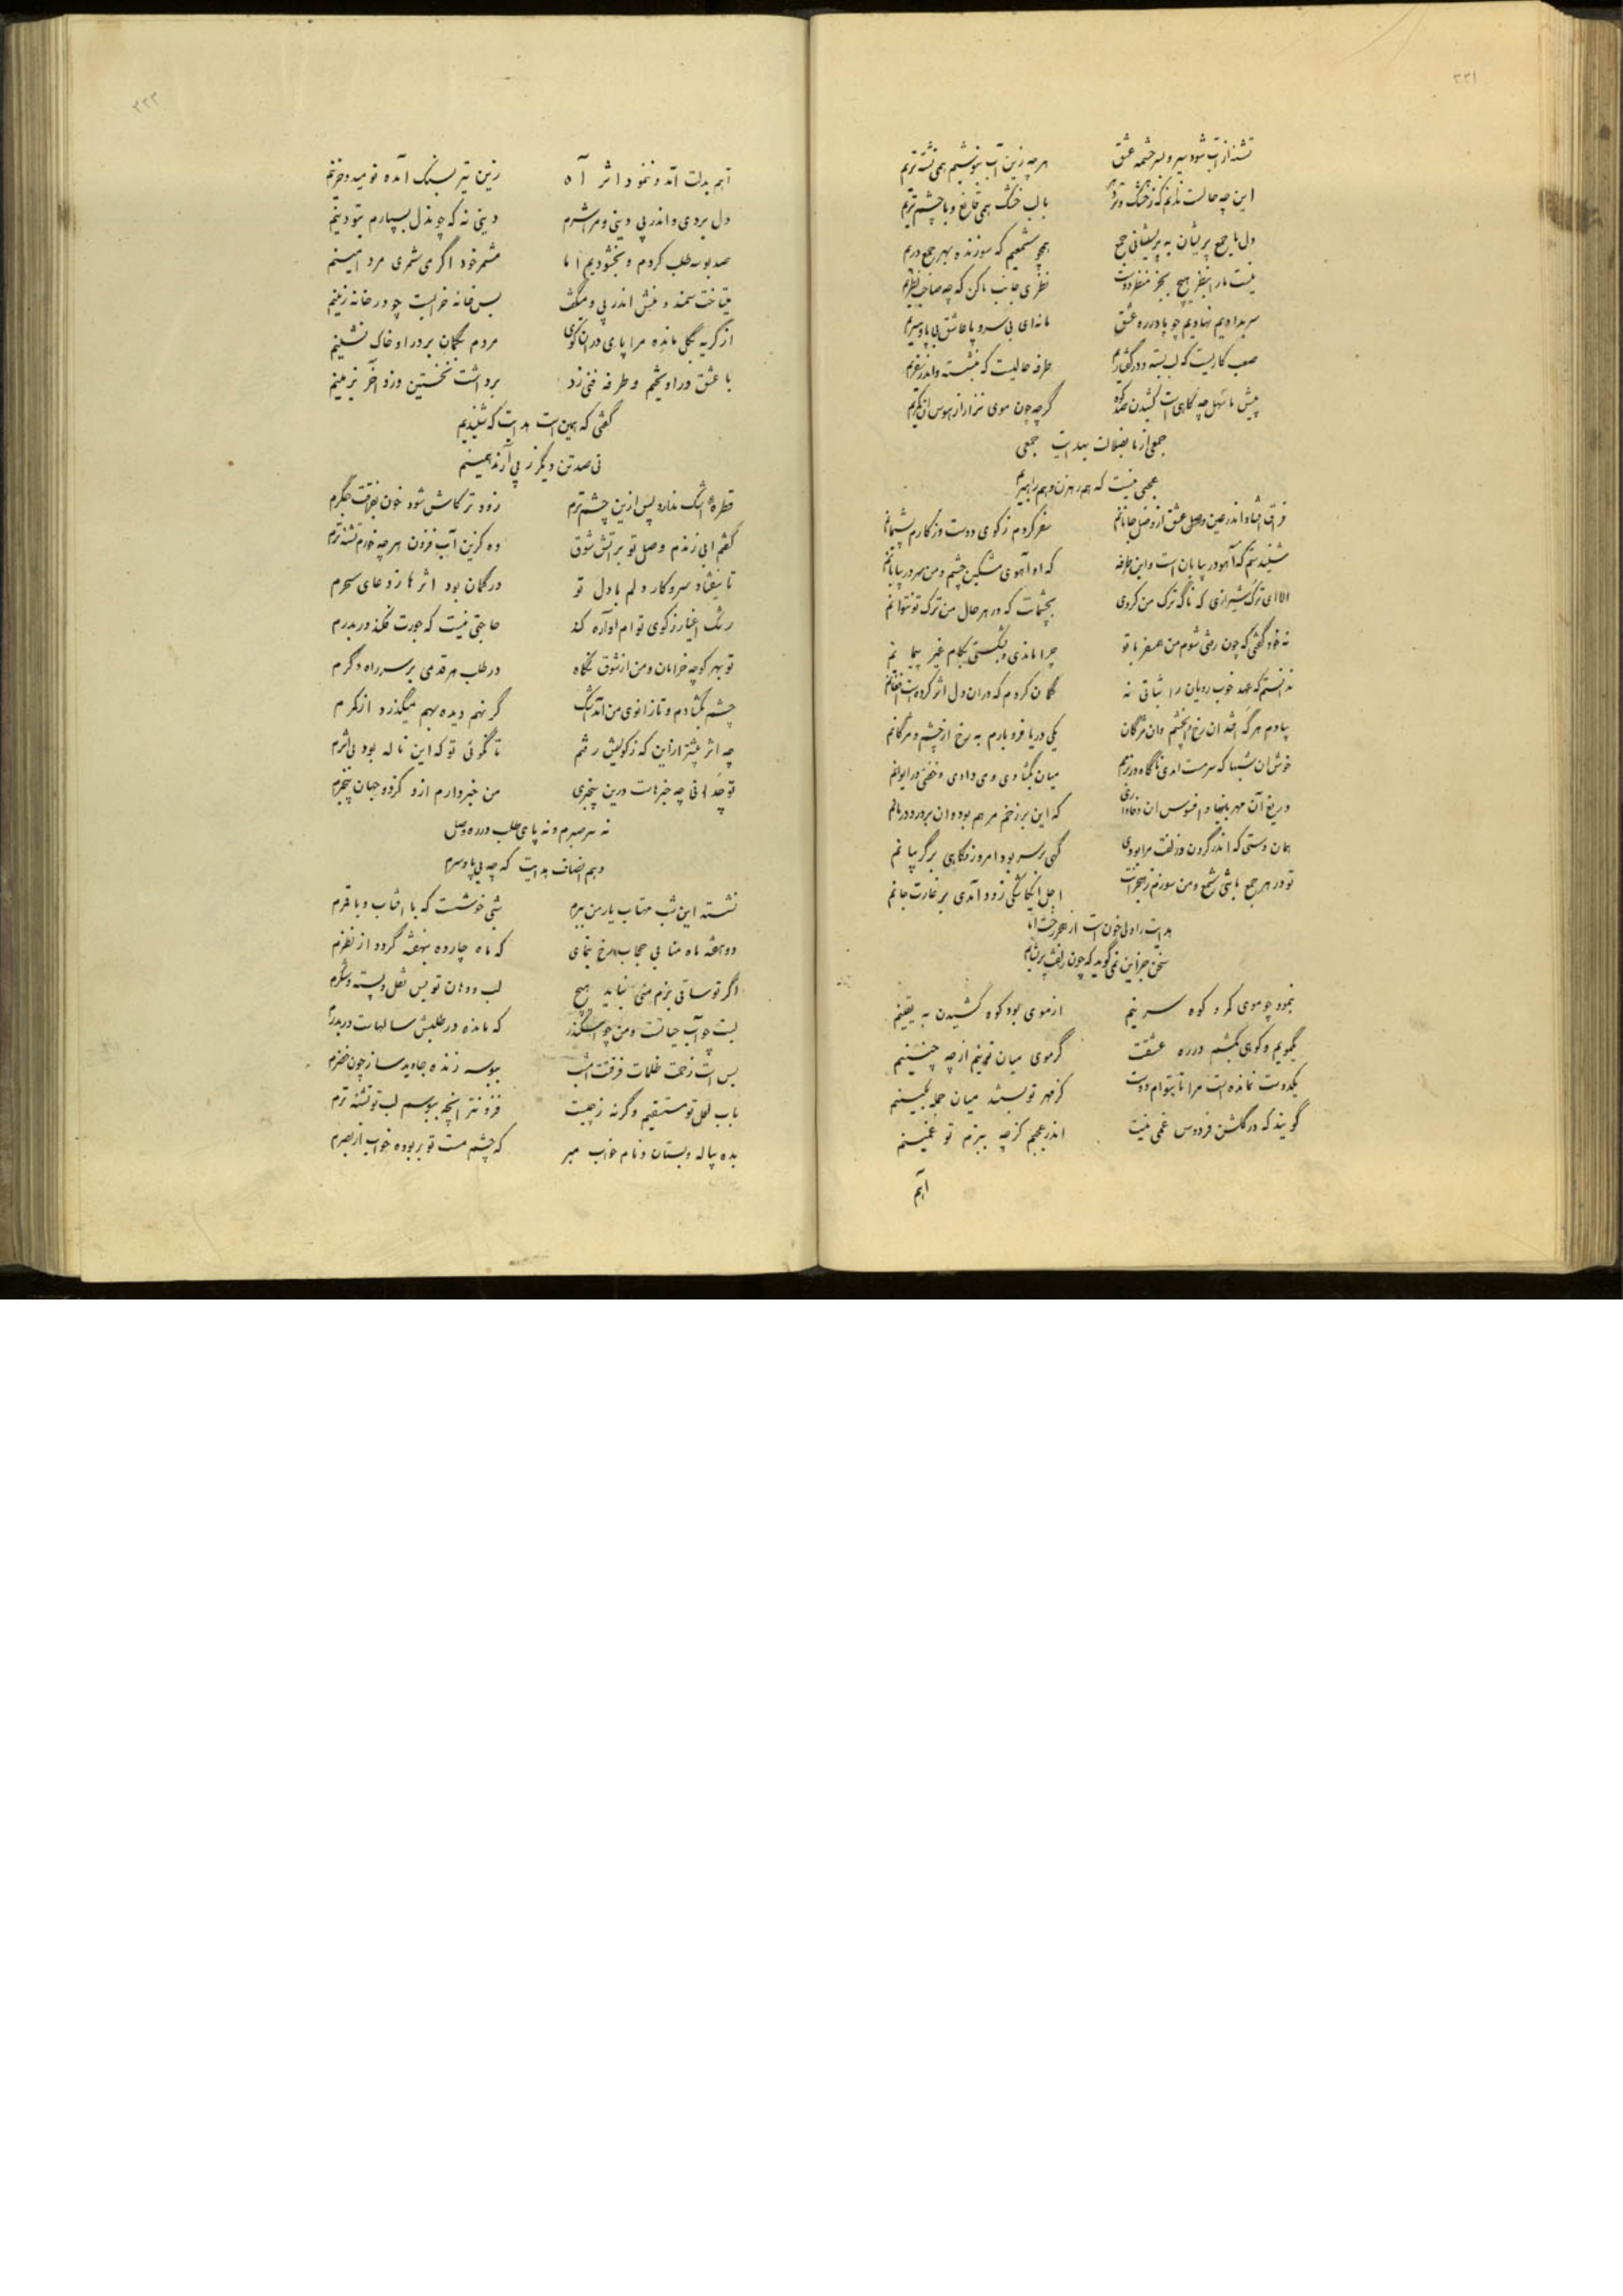 ۲۲۱
تشنه از آب شود سیر و بسرچشمه عشق
هر چه زین آب بنوشیم همی تشنه‌تریم
این چه حالست ندانم که ز خشک و تر دهر
با لب خشک همی قانع و با چشم تریم
دل ما جمع پریشان به پریشانی جمع
همچو شمعیم که سوزنده بهر جمع دریم
نیست ما را بنظر هیچ بجز منظر دوست
نظری جانب ما کن که چه صاحب نظریم
سر بدادیم نهادیم چو پا در ره عشق
مانه‌ای بی سر و پا عاشق بی پا و سریم
صعب کاریست که لب بسته و در گفتاریم
طرفه حالیست که بنشسته و اندر سفریم
پیش ما سهل چه کاهی است کشیدن صد کوه
گرچه چون موی نزار از هوس آن کمریم
جمعی از ما بضلالت بهدایت جمعی
عجبی نیست که هم رهزن و هم راهبریم
فراق افتاد اندر عین وصل عشق از وصل جانانم
سفر کردم ز کوی دوست وز کارم پشیمانم
شنیدستم که آهو در بیابان است و این طرفه
که او آهوی مشکین چشم و من سر در بیابانم
الا ای ترک شیرازی که ناگه ترک من کردی
بچشمانت که در هر حال من ترک تو نتوانم
نه خود گفتی که چون رفتی شوم من همسفر با تو
چرا ماندی و بشکستی بکام غیر پیمانم
ندانستم که عهد خوب رویان را ثباتی نه
گمان کردم که در آن دل اثر کرده است افغانم
بیادم هر گه افتد آن رخ و آن چشم و آن مژگان
یکی دریا فرو بارم به رخ از چشم و مژگانم
خوش آن شبها که سرمست آمدی ناگاه در بزمم
میان بگشادی و می دادی و خفتی در ایوانم
دریغ آن مهربانیها و افسوس آن وفاداری
که این بر زخم مرهم بود و آن بر درد درمانم
همان دستی که اندر گردن و زلفت مرا بودی
گهی بر سر بود امروز و گاهی بر گریبانم
تو در هر جمع باشی شمع و من سوزم ز هجرانت
اجل ای کاشکی زود آمدی بر غارت جانم
هدایت را دلی خون است از هجر رخت اما
سخن جز این نمی گوید که چون زلفت پریشانم
بنمود چو موی کمر و کوه سرینم
از موی بود کوه کشیدن به یقینم
بگمویم و کوهی بکشم در ره عشقت
گر موی میان تو نیم از چه چنینم
یکدوست نمانده است مرا تا بتوام دوست
کز مهر تو بستند میان جمله بکینم
گویند که در گلشن فردوس غمی نیست
اندر عجبم کز چه ببزم تو غمینم
آهم
۲۲۲
آهم بدلت آمد و ننمود اثر آه
زین تیر بسنگ آمده نومید و حزینم
دل بردی و اندر پی دینی و مرا شرم
دینی نه که چو ندل بسپارم بتو دینم
صد بوسه طلب کردم و بخشودیم اما
مشمر خود اگر می شمری مرد امینم
میتاخت سمند و منش اندر پی و میگفت
بس خانه خرابست چو در خانه زینم
از گریه بگل مانده مرا پای در آن کوی
مردم بگمان بر در او خاک نشینم
با عشق در آویختم و طرفه فنی زد
برداشت نخستین و زد آخر بزمینم
گفتی که همین است هدایت که شنیدیم
نی صد تن دیگر ز پی آرند همینم
قطره اشک ندارد پس ازین چشم ترم
زودتر کاش شود خون بفراقت جگرم
گفتم آبی زندم وصل تو بر آتش شوق
وه کزین آب فزون هر چه خورم تشنه‌ترم
تا نیفتاد سر و کار دلم با دل تو
در گمان بود اثرها ز دعای سحرم
رشک اغیار ز کوی توام آواره کند
حاجتی نیست که جورت فکند در بدرم
تو بهر کوچه خرامان و من از شوق نگاه
در طلب هر قدمی بر سر راه دگرم
چشم بگشادم و تا زانوی من آمد اشک
گر نهم دیده بهم میگذرد از کمرم
چه اثر بیشتر از این که ز کویش رفتم
تا نگوئی تو که این ناله بود بی اثرم
تو چه دانی چه خبرهاست درین بیخبری
من خبر دارم ازو کز دو جهان بیخبرم
نه سر صبرم و نه پای طلب در ره وصل
دهم انصاف هدایت که چه بی پا و سرم
نشسته این شب مهتاب یار من ببرم
شبی خوشست که با آفتاب و با قمرم
دو هفته ماه منا بی حجاب رخ بنمای
که ماه چارده بنهفته گردد از نظرم
اگر تو ساقی بزم منی نباید هیچ
لب و دهان تو بس نقل و پسته و شکرم
لبت چو آب حیاتست و من چو اسکندر
که مانده در طلبش سالهاست در بدرم
بس است زحمت ظلمات فرقتت امشب
ببوسه زنده جاوید ساز چون خضرم
بآب لعل تو مستسقیم وگرنه ز چیست
فزونتر آنچه ببوسم لب تو تشنه‌ترم
بده پیاله و بستان و نام خواب مبر
که چشم مست تو بربوده خواب از بصرم